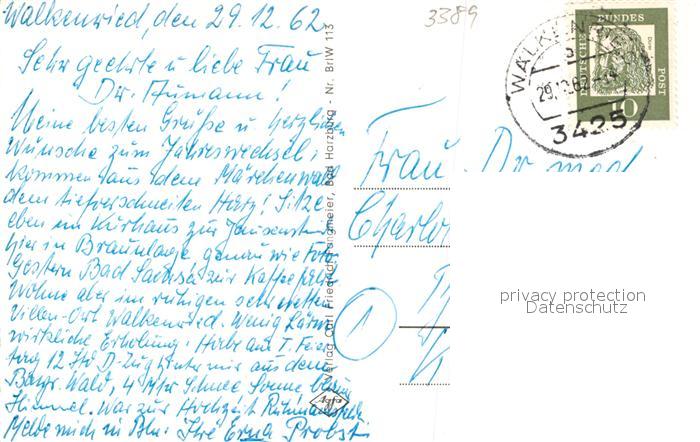 Walkenried, den 29.12.62
Sehr geehrte u liebe Frau
Dr. Aumann!
Meine besten Grüße u. herzlichen
Wünsche zum Jahreswechsel,
kommen aus dem Märchenwald
dem tiefverschneiten Harz! Sitze
eben im Kurhaus zur
hier in Braunlage genau wie Foto
Gestern Bad Sachsa zur Kaffee
Wohne aber im ruhigen sehr netten
Villen-Ort Walkenried. Wenig Lärm
wirkliche Erholung. Habe am I. Feier
tag 12 Std D-Zug hinter mir aus dem
Bayr. Wald, 4 Mtr Schnee Sonne blauer
Himmel. War zur Hochzeit
Melde mich in Bln: Ihre Erna Probst
3389
Verlag Carl Friedrich Fangmeier, Bad Harzburg - Nr. BrlW 113
Agfa
WALKENRIED
29.12.62
3425
DEUTSCHE BUNDESPOST
Dürer
10
Frau Dr med
Charlo
1
privacy protection
Datenschutz